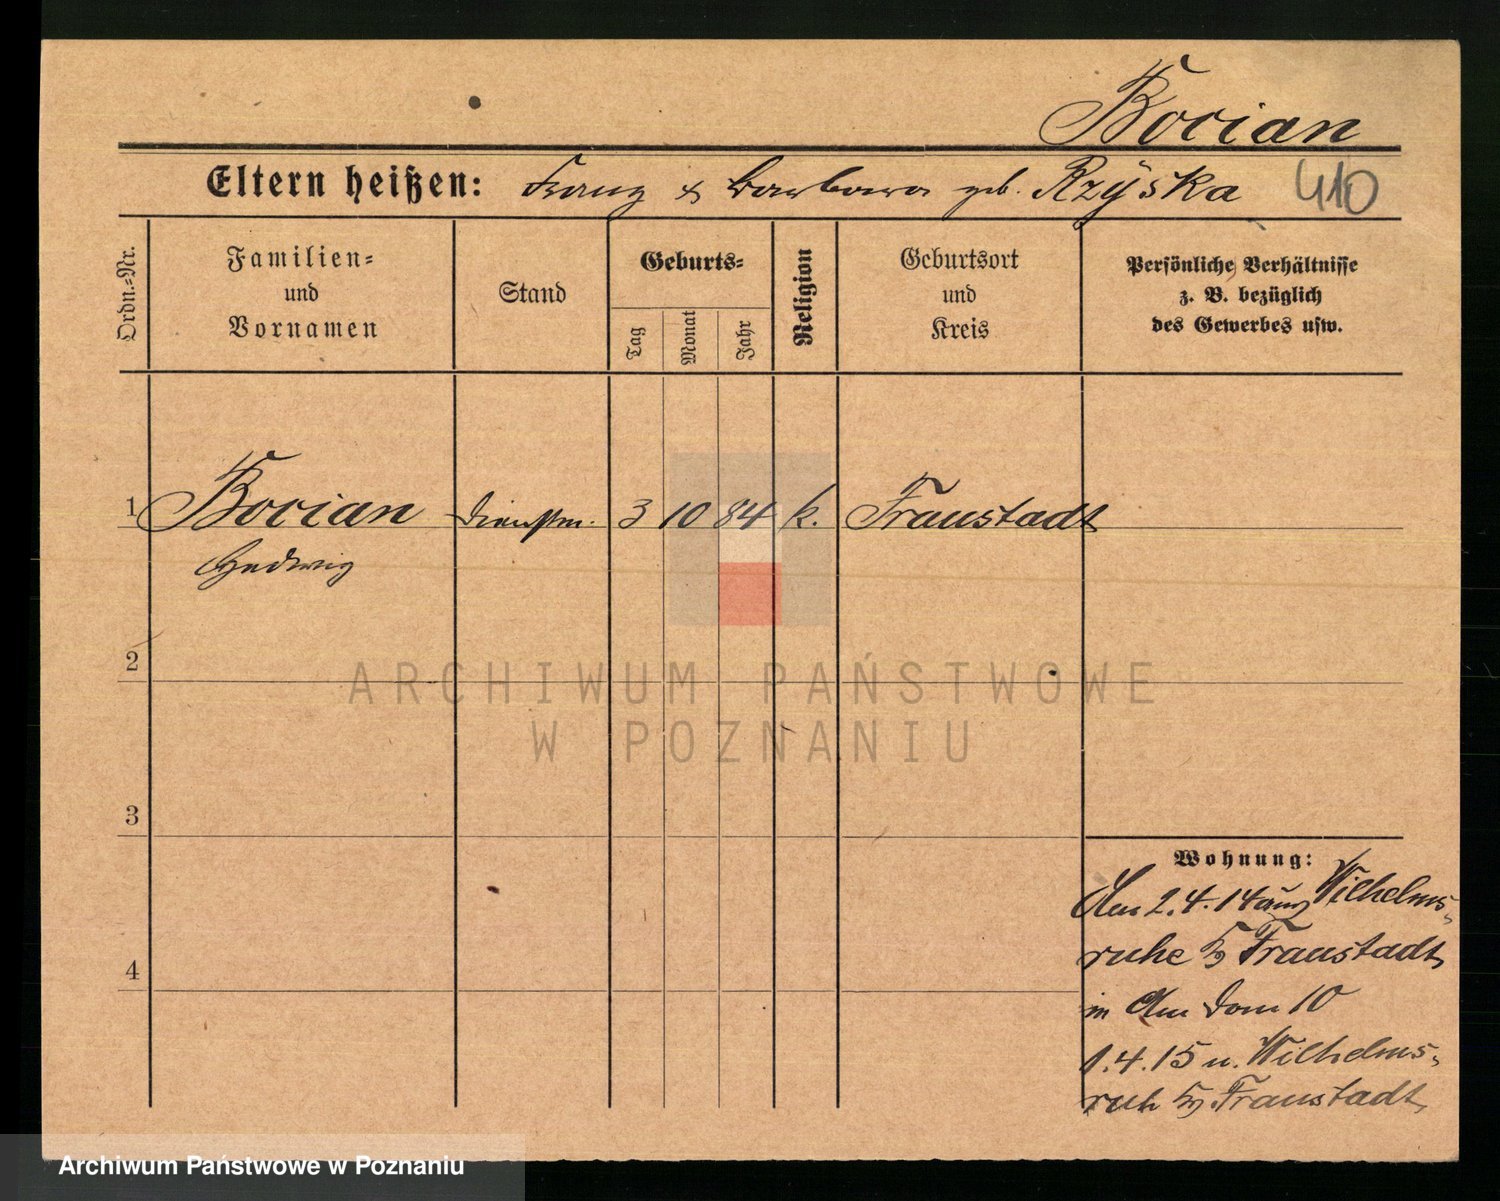 Bocian
Eltern heißen: Franz & Barbara geb. Rzyska 410
Ordn.-Nr.
Familien-
und
Vornamen
Stand
Geburts-
Tag
Monat
Jahr
Religion
Geburtsort
und
Kreis
Persönliche Verhältnisse
z. B. bezüglich
des Gewerbes usw.
1 Bocian Dienstm. 3 10 84 k. Fraustadt
Hedwig
2
ARCHIWUM PAŃSTWOWE
W POZNANIU
3
Wohnung:
Am 2.4.14 aus Wilhelms-
ruhe Kr Fraustadt
4
in Am Dom 10
1.4.15 n. Wilhelms-
ruh Kr Fraustadt
Archiwum Państwowe w Poznaniu